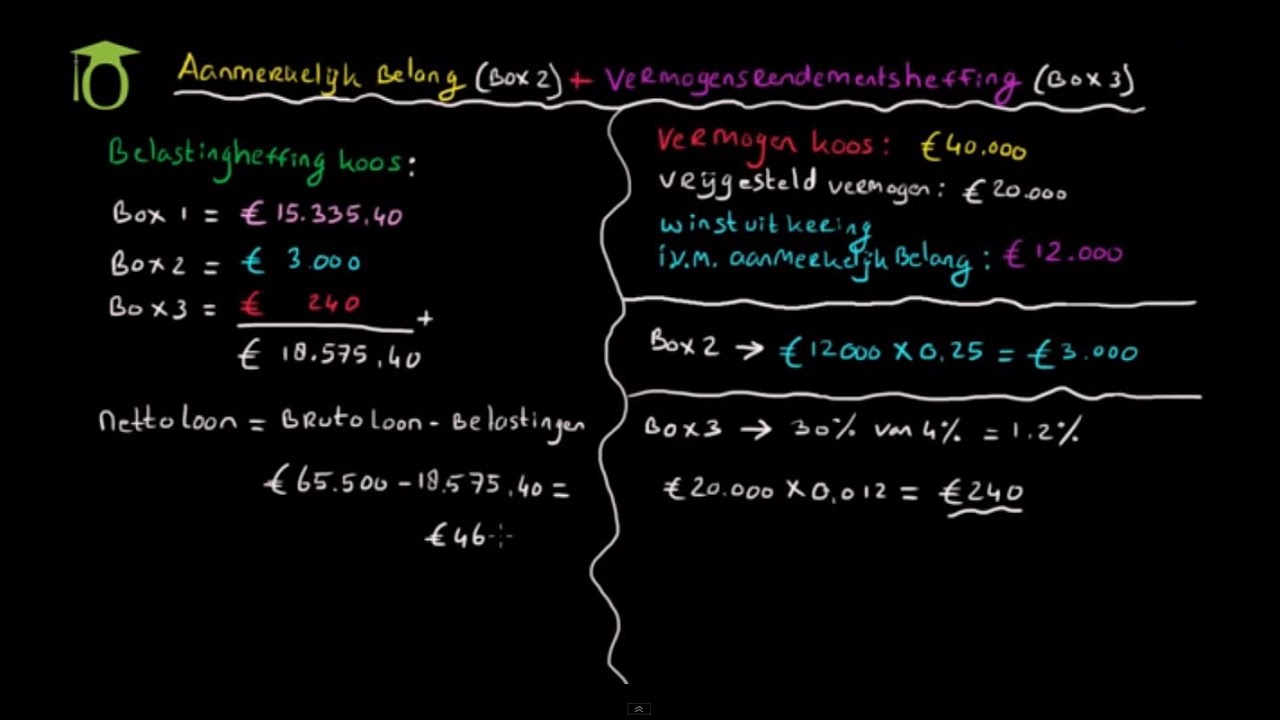 Aanmerkelijk Belang (Box 2) + Vermogensrendementsheffing (Box 3)
Belastingheffing Koos:
Box 1 = € 15.335,40
Box 2 = € 3.000
Box 3 = € 240 +
€ 18.575,40
Nettoloon = Brutoloon - Belastingen
€ 65.500 - 18.575,40 =
€ 46
Vermogen Koos: € 40.000
Vrijgesteld vermogen: € 20.000
winstuitkering
i.v.m. aanmerkelijk Belang: € 12.000
Box 2 → € 12000 x 0,25 = € 3.000
Box 3 → 30% van 4% = 1.2%
€ 20.000 x 0,012 = € 240